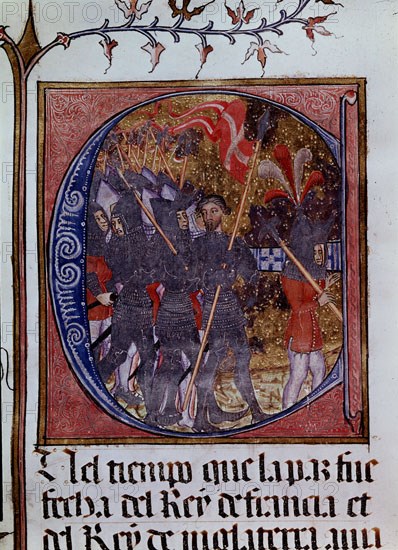 EN el tiempo que la paz fue
fecha del Rey de francia et
del Rey de inglaterra auia